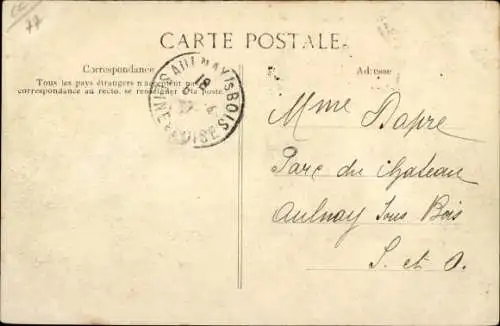 77
CARTE POSTALE
Correspondance
Tous les pays étrangers n'acceptent pas la
correspondance au recto, se renseigner à la poste.
Adresse
AULNAY-S-BOIS
SEINE-&-OISE
18
Mme Dapre
Parc du château
Aulnay Sous Bois
S. et O.